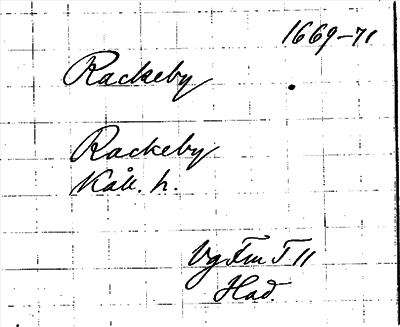 1669-71
Rackeby
Rackeby
Kåll. h.
Vg Fm T 11
Had.